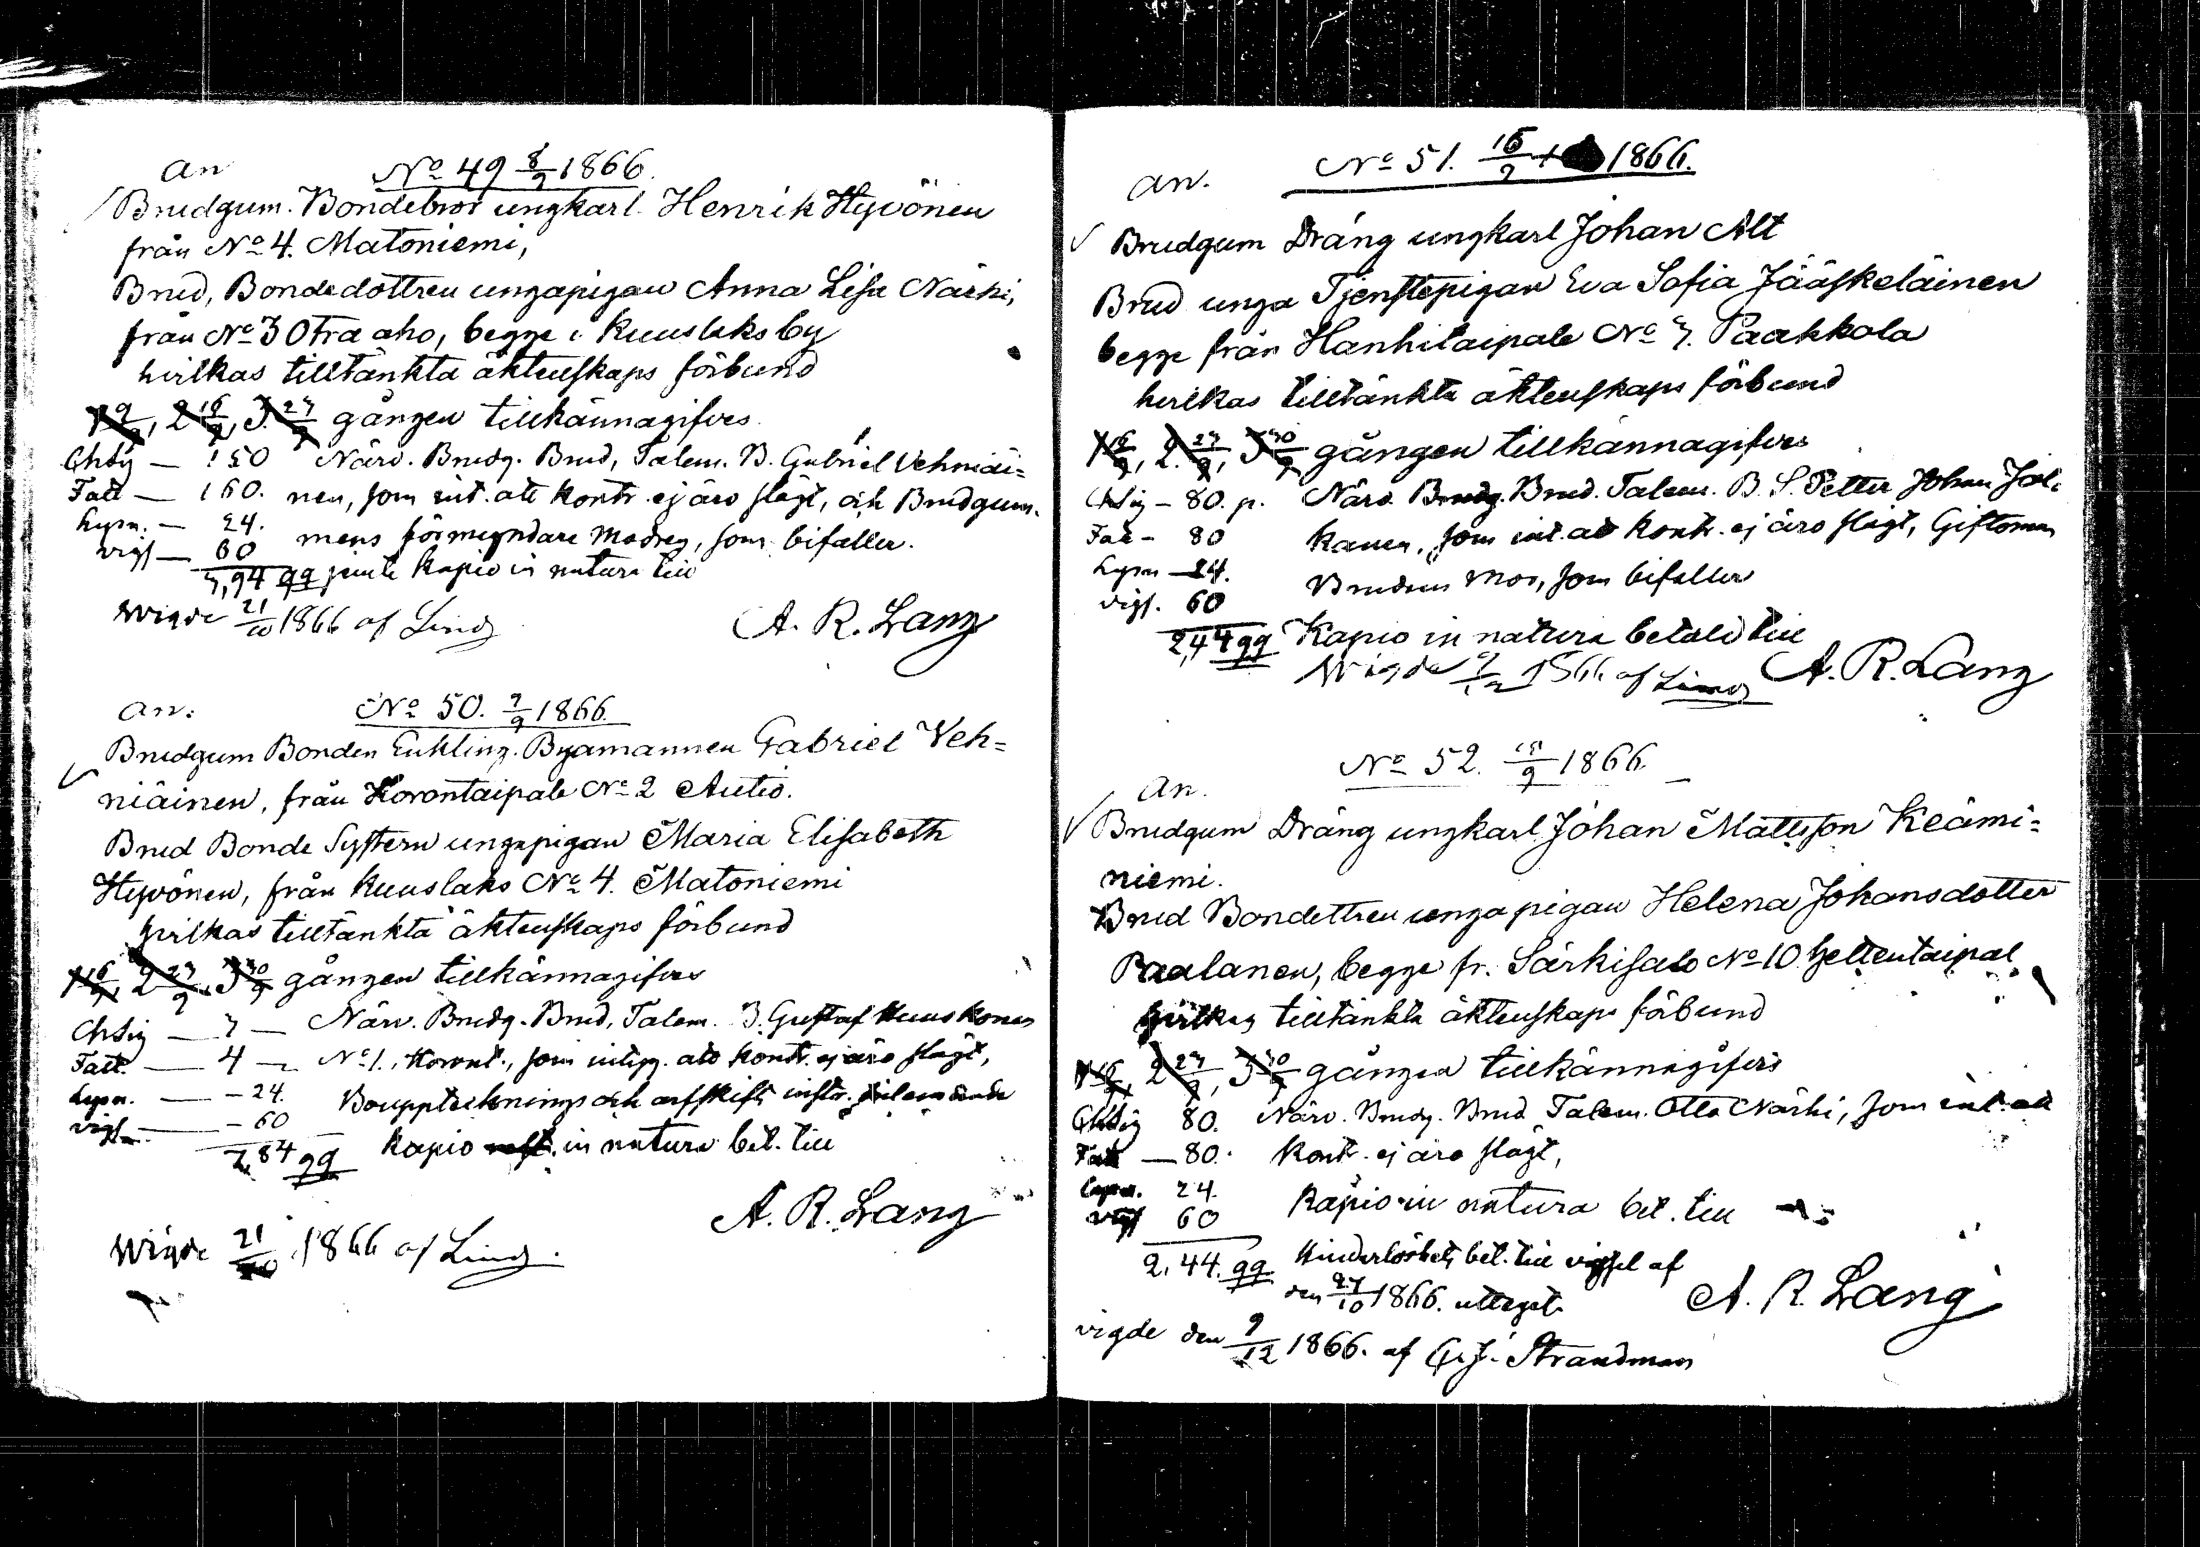 an No 49 8/9 1866.
Brudgum. Bondebror ungkarl Henrik Hyvönen
från No 4. Matoniemi,
Brud, Bondedottren ungapigan Anna Lisa Närhi,
från No 3 Otra aho, begge i Kuuslaks by
hvilkas tilltänkta äktenskaps förbund
1 9/9, 2 16/9, 3. 23/9 gången tillkännagifves.
Chtig — 150 Närv. Brudg. Brud, Talem. B. Gabriel Vehniäi=
Fatt — 160. nen, som int. att kontr. ej äro slägt, och Brudgum-
Lysn. — 24. mens förmyndare Modren, som bifaller.
vigs — 60
3,94 qq jemte kapio in natura till
Wigde 21/10 1866 af Lind
A. R. Lang
an. No 50. 9/9 1866.
Brudgum Bonden Enkling. Byamannen Gabriel Veh=
niäinen, från Korontaipale No 2 Autio.
Brud Bonde Systern ungapigan Maria Elisabeth
Hyvönen, från Kuuslaks No 4. Matoniemi
hvilkas tilltänkta äktenskaps förbund
1 16/9, 2 23/9, 3 30/9 gången tillkännagifves
Chtig — 3 — Närv. Brudg. Brud, Talem. B. Gustaf Kuuskonen
Fatt. — 4 — No 1. Koront., som intyg. att kontr. ej äro slägt,
Lysn. — - 24. Boupptecknings och arfskift
vigs — - 60
7,84 qq Kapio in natura bet. till
A. R. Lang
Wigde 21/10 1866 af Lind.
an. No 51. 16/9 1866.
Brudgum Dräng ungkarl Johan Alt
Brud unga Tjenstepigan Eva Sofia Jääskeläinen
begge från Hanhitaipale No 3. Paakkola
hvilkas tilltänkta äktenskaps förbund
1 16/9, 2. 23/9, 3 30/9 gången tillkännagifves
Chtig — 80. p. Närv. Brudg. Brud. Talem. B. S. Petter Johan Jal-
Fatt — 80 kanen, som int. att kontr. ej äro slägt, Giftoman
Lysn — 24. Brudens mor, som bifaller
vigs. 60
2,44 qq Kapio in natura betald till
Wigde 1866 af Lind A. R. Lang
No 52. 15/9 1866
an.
Brudgum Dräng ungkarl Johan Mattsson Keämi=
niemi.
Brud Bondettren unga pigan Helena Johansdotter
Paalanen, begge fr. Särkisalo No 10 Heltentaipal
hvilkas tilltänkta äktenskaps förbund
1 16/9, 2 23/9, 3 30/9 gången tillkännagifves
Chtig 80. Närv. Brudg. Brud Talem. Otto Närhi, som int. att
Fatt — 80. kontr. ej äro slägt,
Lysn. 24. Kapio in natura bet. till
vigs 60
2,44. qq Hinderlöshets bet. till vigsel af
den 27/10 1866. uttaget.
A. R. Lang
vigde den 9/12 1866. af G. J. Strandman